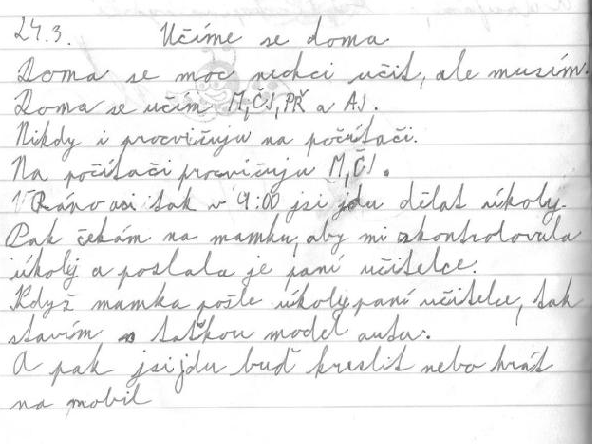 24.3. Učíme se doma
Doma se moc nechci učit, ale musím.
Doma se učím M, ČJ, PŘ a AJ.
Nikdy i procvičuju na počítači.
Na počítači procvičuju M, ČJ.
Ráno asi tak v 9:00 jsi jdu dělat úkoly.
Pak čekám na mamku, aby mi zkontrolovala
úkoly a poslala je paní učitelce.
Když mamka pošle úkoly paní učitelce, tak
stavím s taťkou model auta.
A pak jsi jdu buď kreslit nebo hrát
na mobil